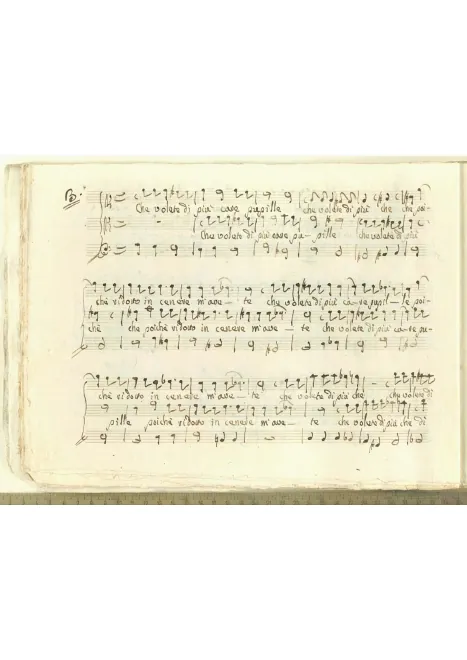 Che volete di più care pupille che volete di più che che poi-
Che volete di più care pu- pille che volete di più
chè ridotto in cenere m'ave- te che volete di più ca-re pupil-le poi-
chè che poichè ridotto in cenere m'ave- te che volete di più ca-re pu-
chè ridotto in cenere m'ave- te che volete di più che che volete di
pille poichè ridotto in cenere m'ave- te che volete di più che di